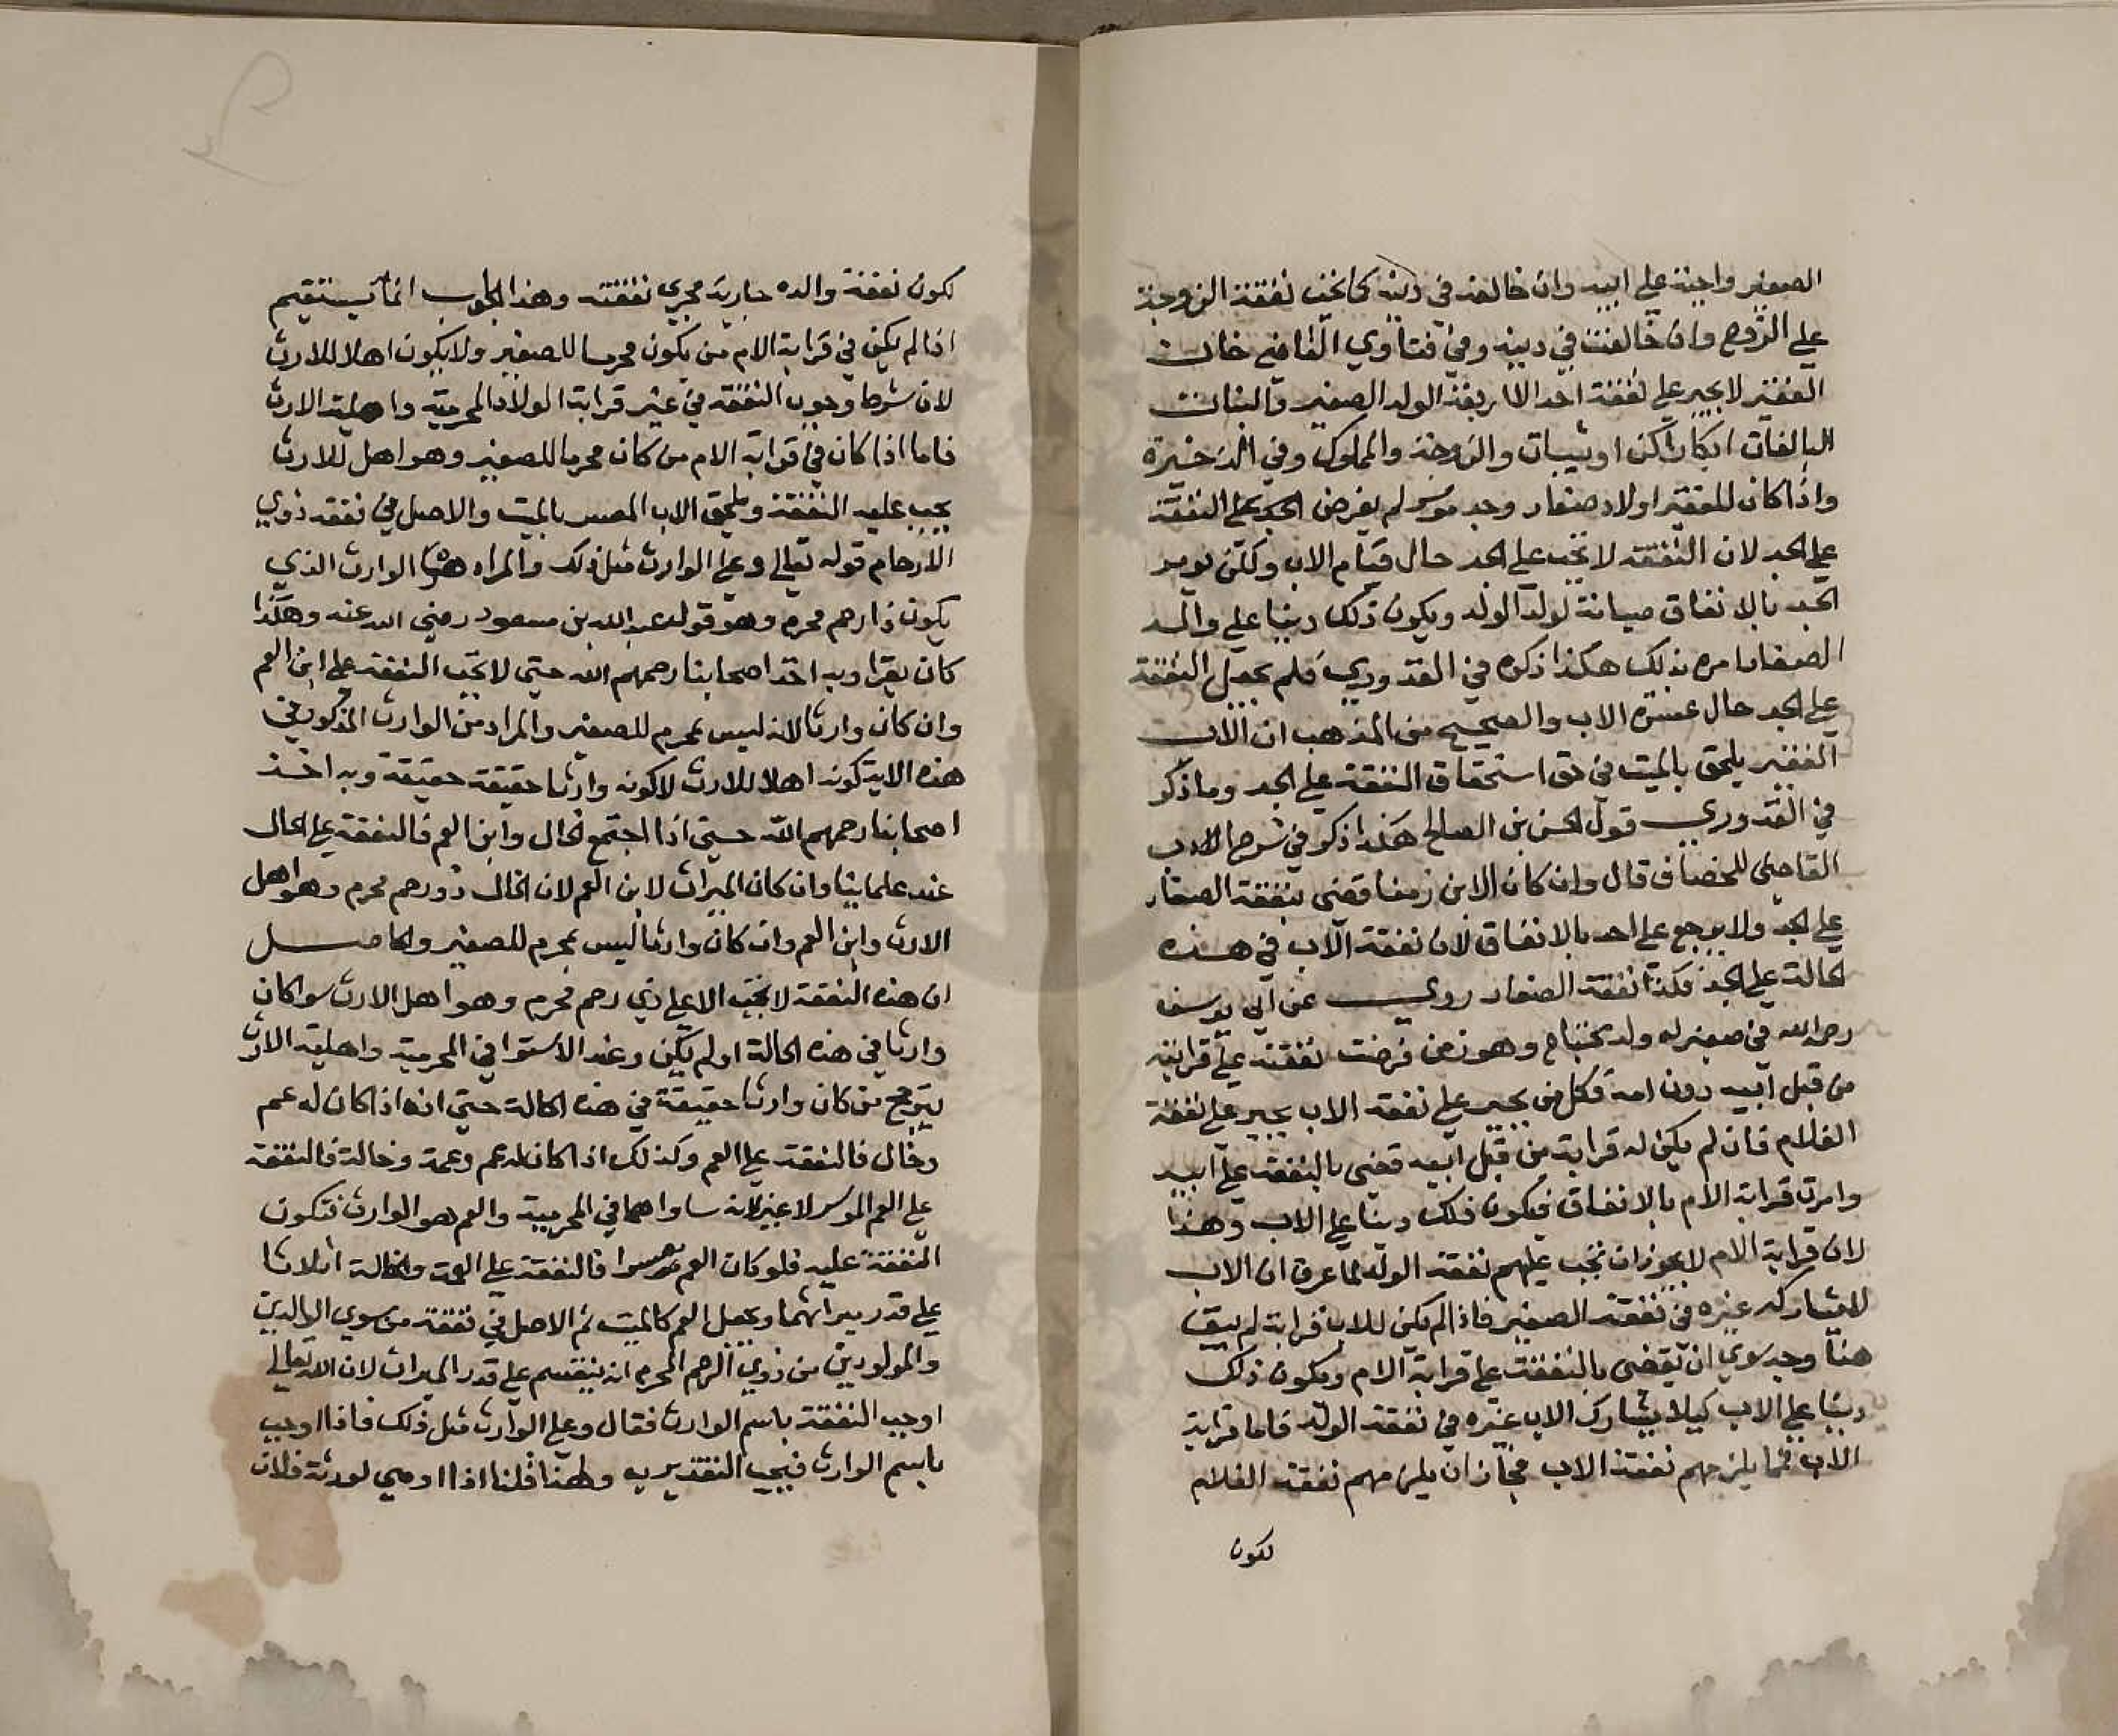 الصغير واجبة على ابيه وان خالفه في دينه كما تجب نفقة الزوجة
على الزوج وان خالفت في دينه وفي فتاوي القاضي خان
الفقير لا يجبر على نفقة احد الا اربعة الولد الصغير والبنات
البالغات ابكارا كن او ثيبات والزوجة والمملوك وفي الذخيرة
واذا كان للفقير اولاد صغار وجد موسر لم يفرض الجد على النفقة
على الجد لان النفقة لا تجب على الجد حال قيام الاب ولكن يومر
الجد بالانفاق صيانة لولد الولد ويكون ذلك دينا على والد
الصغار امره بذلك هكذا ذكره في القدوري فلم يجعل النفقة
على الجد حال عسرة الاب والصحيح من المذهب ان الاب
الفقير يلحق بالميت في حق استحقاق النفقة على الجد وما ذكر
في القدوري قول الحسن بن الصالح هكذا ذكر في شرح الادب
القاضي للخصاف قال وان كان الابن زمنا قضى بنفقة الصغار
على الجد ولا يرجع على احد بالانفاق لان نفقة الاب في هذه
الحالة على الجد فكذا نفقة الصغار روي عن ابي يوسف
رحمه الله في صغير له والد محتاج وهو زمن فرضت نفقته على قرابته
من قبل ابيه دون امه فكل من يجبر على نفقة الاب يجبر على نفقة
الغلام فان لم يكن له قرابة من قبل ابيه قضى بالنفقة على ابيه
وامرت قرابة الام بالانفاق فيكون ذلك دينا على الاب وهذا
لان قرابة الام لا يجوز ان تجب عليهم نفقة الولد لما عرف ان الاب
لا يشاركه غيره في نفقة الصغير فاذا لم يكن للاب قرابة لم يبق
هنا وجد سوي ان يقضى بالنفقة على قرابة الام ويكون ذلك
دينا على الاب كيلا يشارك الاب غيره في نفقة الولد فاما قرابة
الاب فما يلزمهم نفقة الاب فجاز ان يلزمهم نفقة الغلام
لكون
لكون نفقة والده جارية مجري نفقته وهذا الجواب انما يستقيم
اذا لم يكن في قرابة الام من يكون محرما للصغير ولا يكون اهلا للارث
لان شرط وجوب النفقة في غير قرابة الولاد المحرمية واهلية الارث
فاما اذا كان في قرابة الام من كان محرما للصغير وهو اهل للارث
يجب عليه النفقة ويلحق الاب المعسر بالميت والاصل في نفقة ذوي
الارحام قوله تعالي وعلي الوارث مثل ذلك والمراد هو الوارث الذي
يكون ذا رحم محرم وهو قول عبد الله بن مسعود رضي الله عنه وهكذا
كان يقرا وبه اخذ اصحابنا رحمهم الله حتي لا تجب النفقة على ابن العم
وان كان وارثا لانه ليس بمحرم للصغير والمراد من الوارث المذكور في
هذه الاية كونه اهلا للارث لا كونه وارثا حقيقة حقيقة وبه اخذ
اصحابنا رحمهم الله حتي اذا اجتمع الخال وابن العم فالنفقة على الخال
عند علماينا وان كان الميراث لابن العم لان الخال ذو رحم محرم وهو اهل
الارث وابن العم وان كان وارثا ليس بمحرم للصغير والحاصل
ان هذه النفقة لا تجب الا على ذي رحم محرم وهو اهل الارث سوا كان
وارثا في هذه الحالة او لم يكن وعند الاستوا في المحرمية واهلية الارث
يترجح من كان وارثا حقيقة في هذه الحالة حتي انه اذا كان له عم
وخال فالنفقة على العم وكذلك اذا كان له عم وعمة وخالة فالنفقة
على العم الموسر لا غير لانه ساواهما في المحرمية والعم هو الوارث فتكون
النفقة عليه فلو كان العم معسرا فالنفقة على العمة والخالة اثلاثا
على قدر ميراثهما ويجعل العم كالميت ثم الاصل في نفقة من سوي الوالدين
والمولودين من ذوي الرحم المحرم انه ينقسم على قدر الميراث لان الله تعالي
اوجب النفقة باسم الوارث فقال وعلي الوارث مثل ذلك فاذا اوجب
باسم الوارث فيجب التقدير به ولهذا قلنا اذا اوصي لورثة فلان